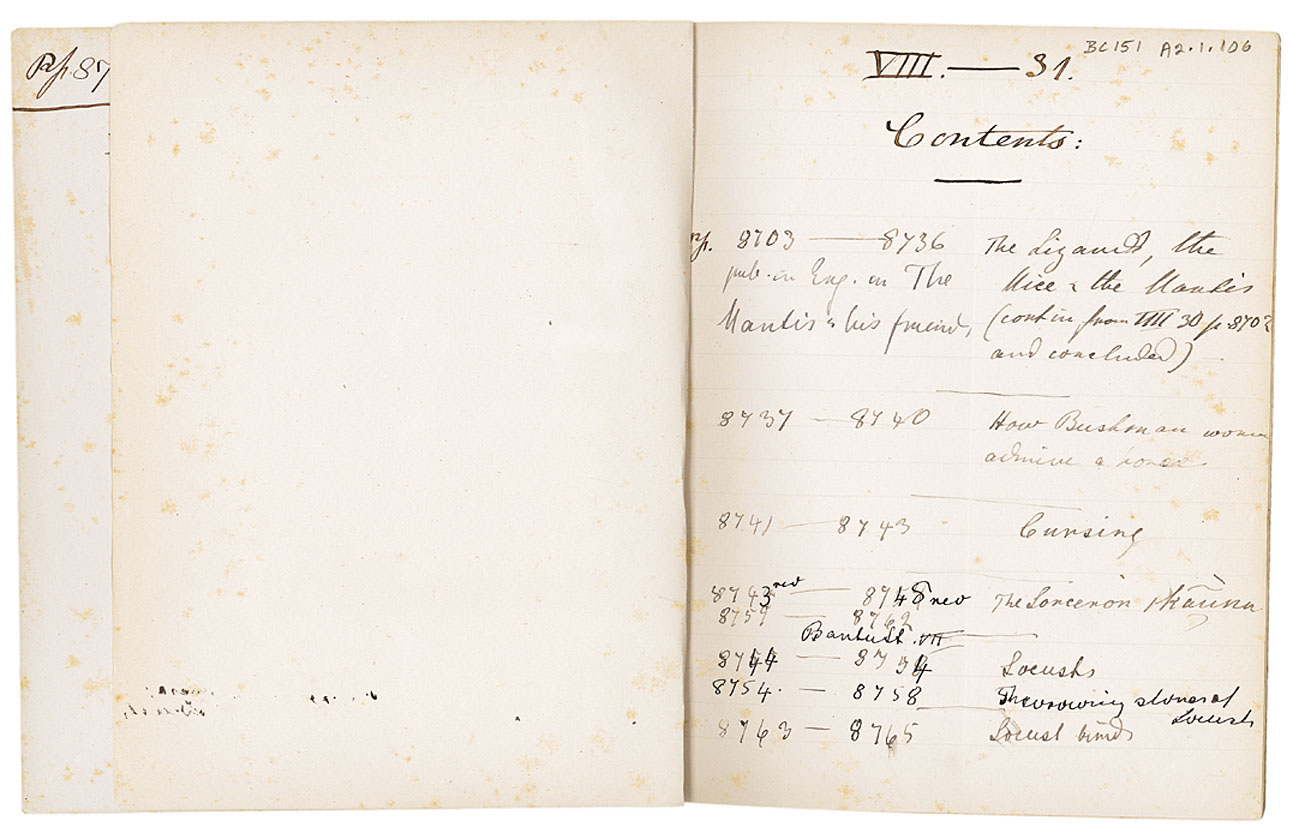 Pp. 87
BC151 A2.1.106
VIII. — 31.
Contents:
Pp. 8703 — 8736 The Lizard, the
pub. in Eng. in The Mice & the Mantis
Mantis & his friends (contin from VIII 30 p. 8702
and concluded)
8737 — 8740 How Bushman women
admire a
8741 — 8743 Cursing
8743 rev — 8748 rev The Sorceror
8759 — 8762
Bantu St. VII
8744 — 8754 Locusts
8754. — 8758 Throwing stones at
Locusts
8763 — 8765 Locust birds